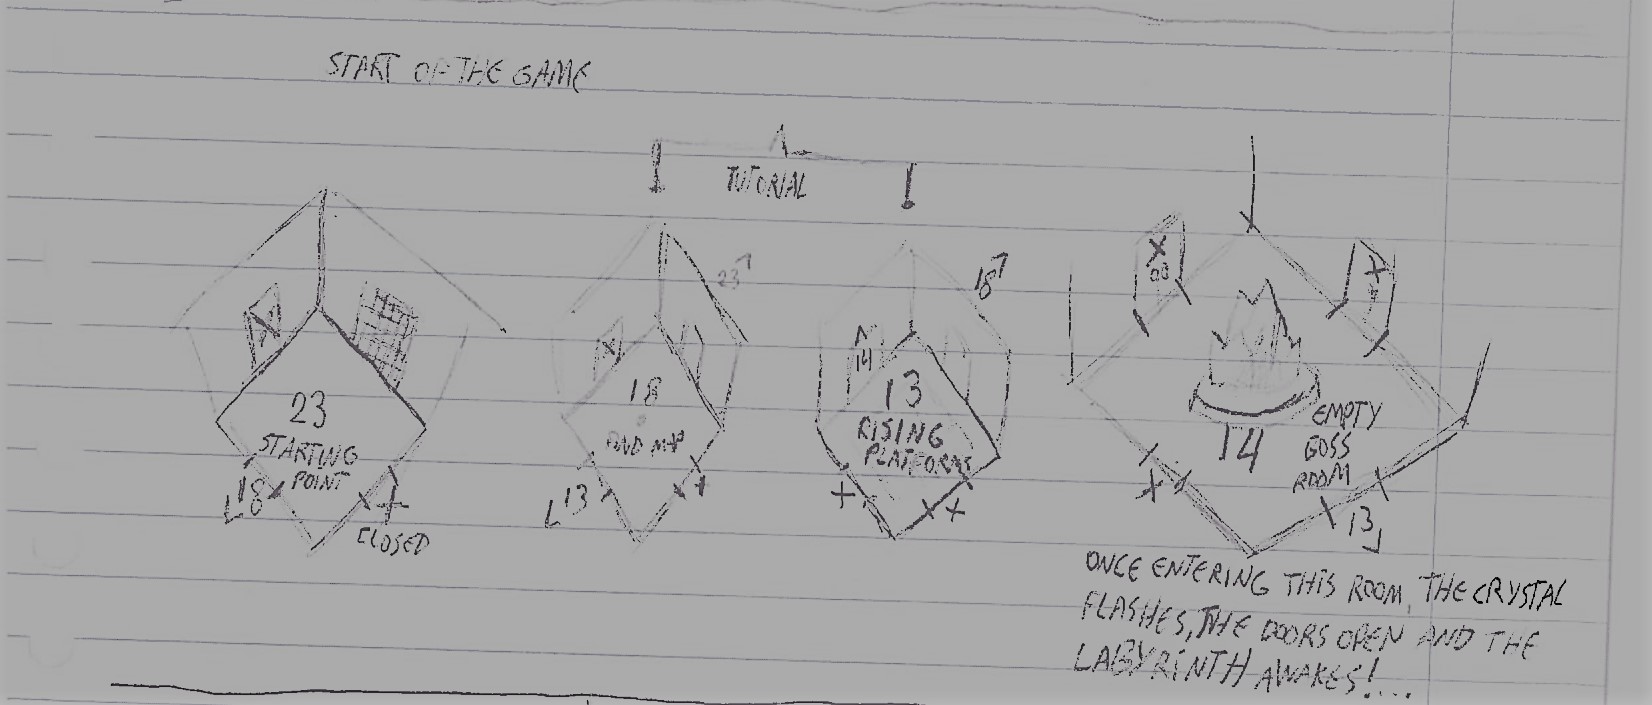 START OF THE GAME
TUTORIAL
X
23
STARTING
POINT
18
X
CLOSED
23
X
18
FIND MAP
13
X
18
14
13
RISING
PLATFORMS
X
X
X
X
14
EMPTY
BOSS
ROOM
X
13
ONCE ENTERING THIS ROOM, THE CRYSTAL
FLASHES, THE DOORS OPEN AND THE
LABYRINTH AWAKES!...